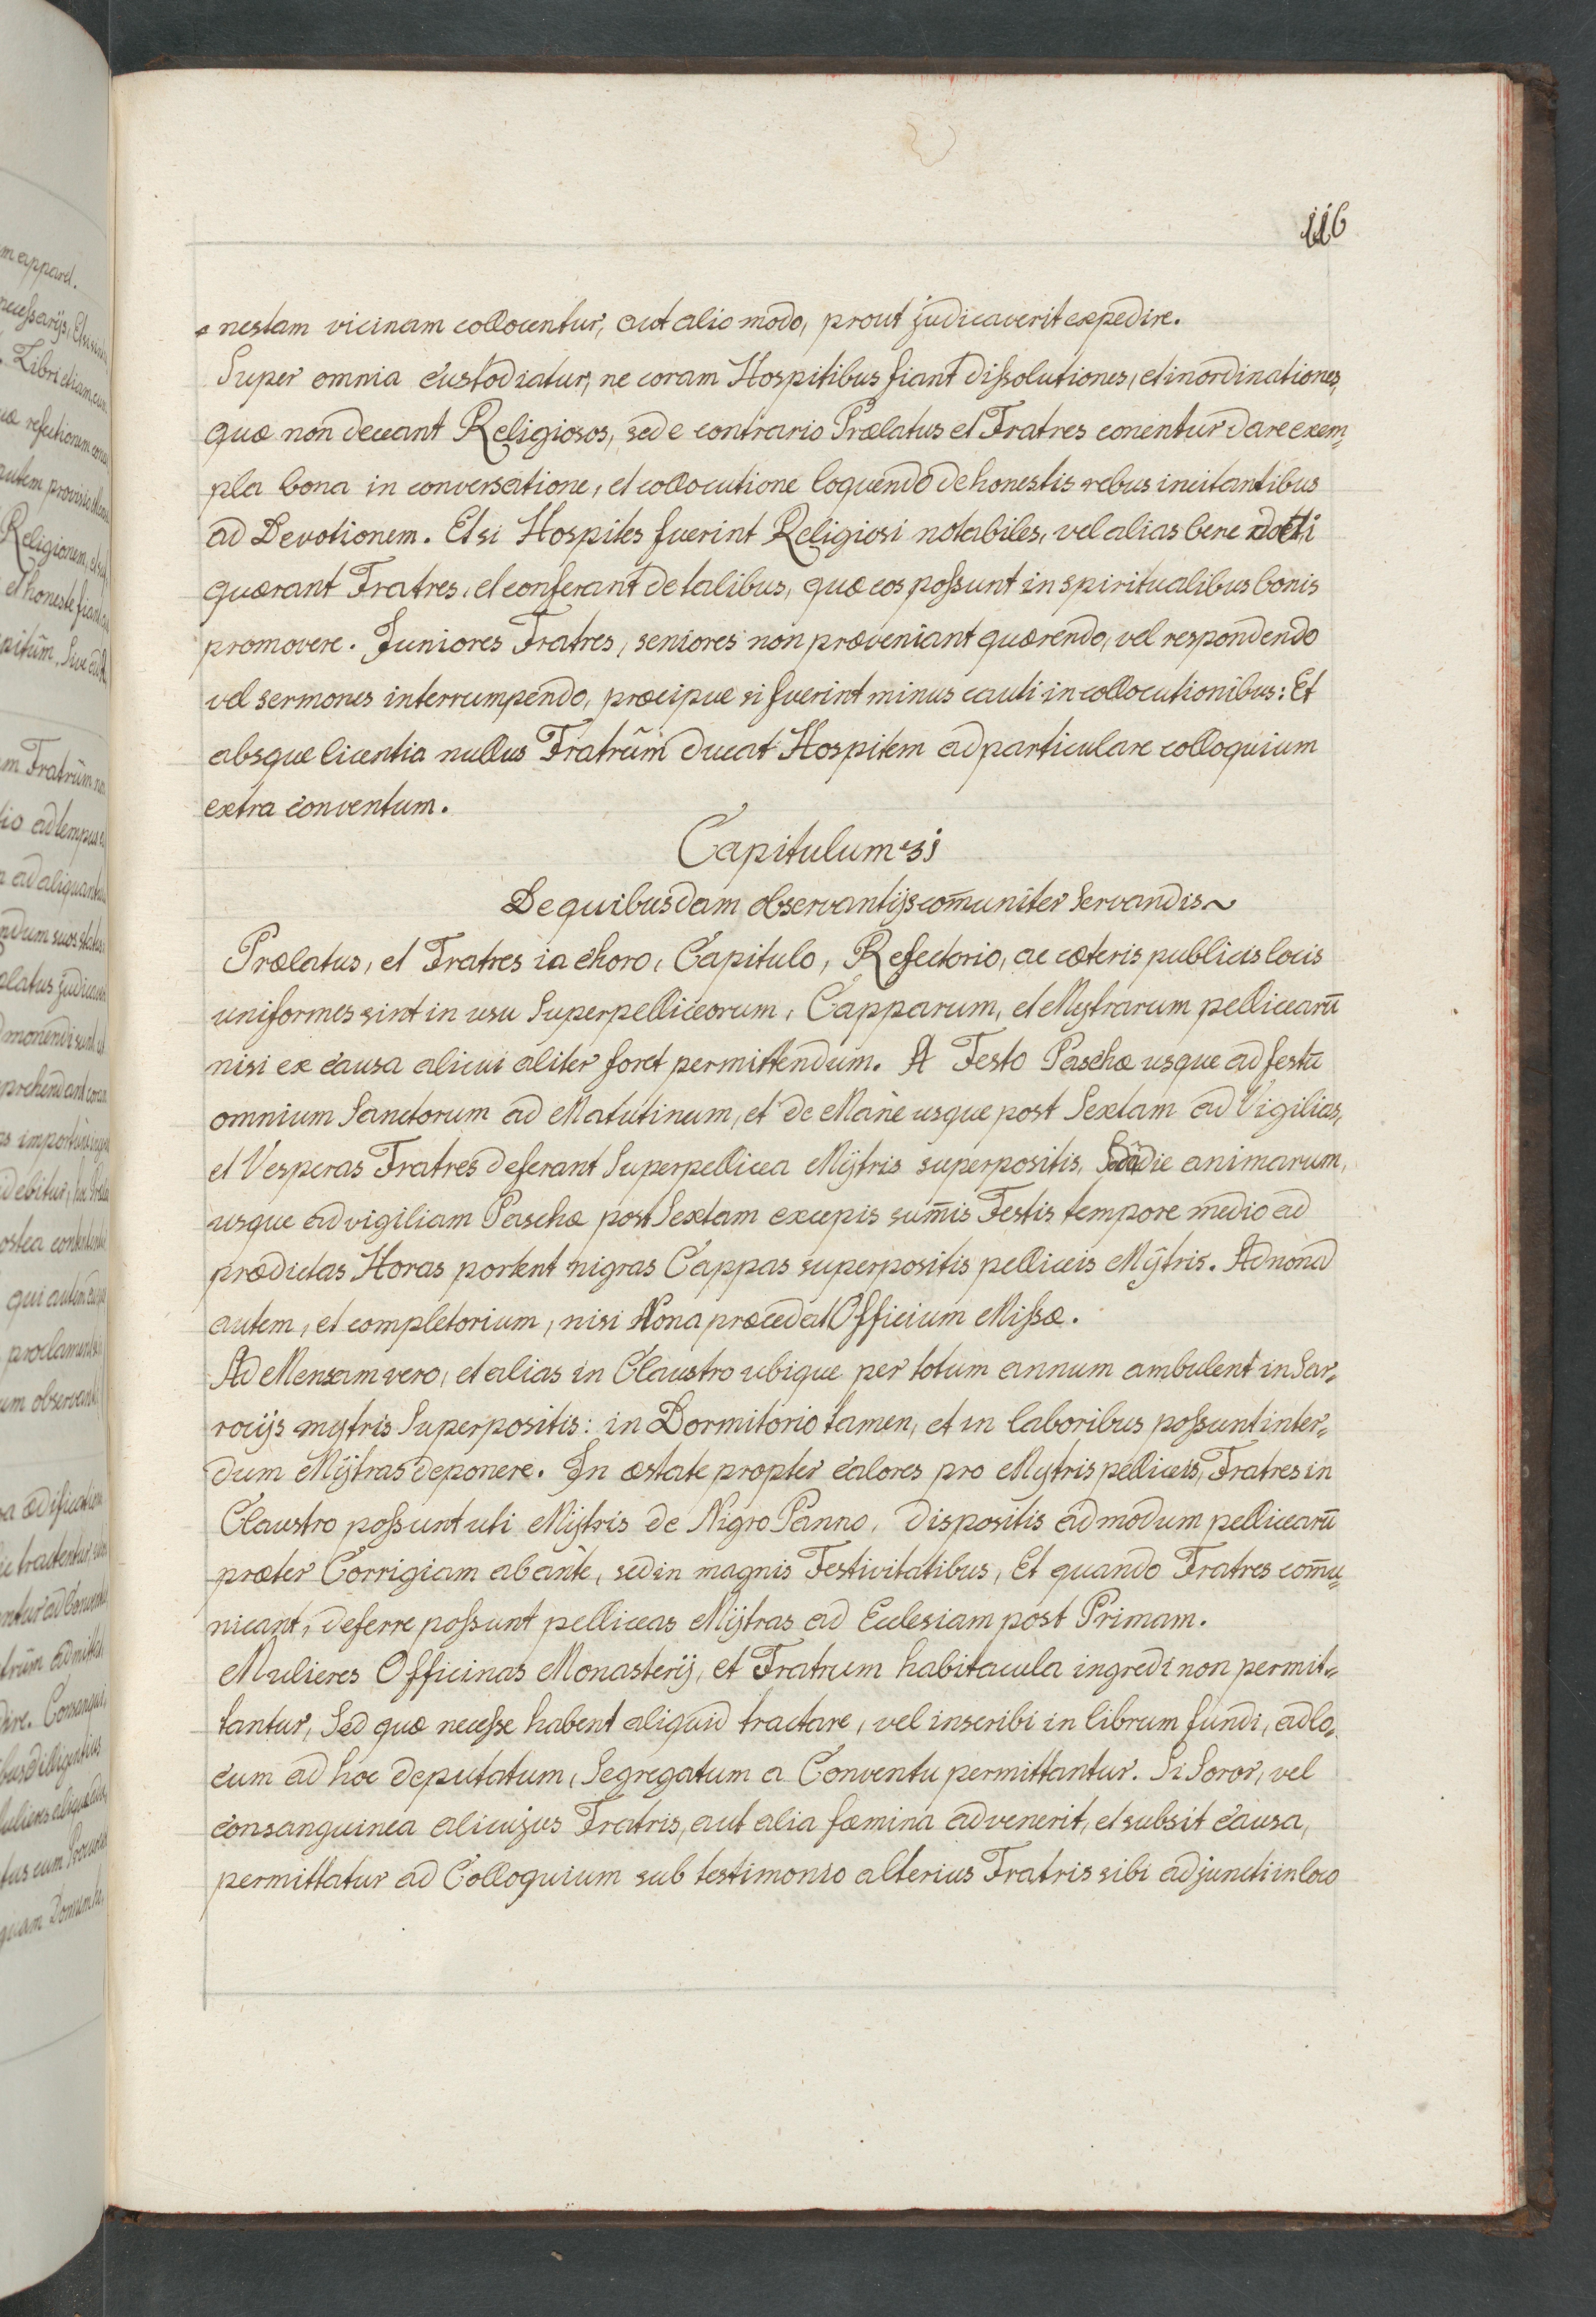 116
nestam vicinam collocentur, aut alio modo, prout judicaverit expedire.
Super omnia custodiatur, ne coram Hospitibus fiant dissolutiones, et inordinationes,
quæ non deceant Religiosos, sed e contrario Prælatus et Fratres conentur dare exem=
pla bona in conversatione, et collocutione loquendo de honestis rebus incitantibus
ad Devotionem. Et si Hospites fuerint Religiosi notabiles, vel alias bene docti
quærant Fratres, et conferant de talibus, quæ eos possunt in spiritualibus bonis
promovere. Juniores Fratres, seniores non præveniant quærendo, vel respondendo
vel sermones interrumpendo, præcipue si fuerint minus cauti in collocutionibus: Et
absque licentia nullus Fratrum ducat Hospitem ad particulare colloquium
extra conventum.
Capitulum 31
De quibusdam observantijs com̄uniter servandis~
Prælatus, et Fratres in choro, Capitulo, Refectorio, ac cæteris publicis locis
uniformes sint in usu Superpelliceorum, Capparum, et Mytrarum pellicearū
nisi ex causa alicui aliter foret permittendum. A Festo Paschæ usque ad festū
omnium Sanctorum ad Matutinum, et de Mane usque post Sextam ad Vigilias,
et Vesperas Fratres deferant Superpellicea Mÿtris superpositis, die animarum,
usque ad vigiliam Paschæ post Sextam excepis sum̄is Festis tempore medio ad
prædictas Horas portent nigras Cappas superpositis pelliceis Mÿtris. Ad nonā
autem, et completorium, nisi Nona præcedat Officium Missæ.
Ad Mensam vero, et alias in Claustro ubique per totum annum ambulent in Sar=
rocijs mytris Superpositis: in Dormitorio tamen, et in laboribus possunt inter=
dum Mÿtras deponere. In æstate propter calores pro Mytris pelliceis, Fratres in
Claustro possunt uti Mÿtris de Nigro Panno, dispositis ad modum pellicearū
præter Corrigiam abante, sed in magnis Festivitatibus, Et quando Fratres com̄u=
nicant, deferre possunt pelliceas Mÿtras ad Ecclesiam post Primam.
Mulieres Officinas Monasterij, et Fratrum habitacula ingredi non permit=
tantur, Sed quæ necesse habent aliquid tractare, vel inscribi in librum fundi, ad lo=
cum ad hoc deputatum, Segregatum a Conventu permittantur. Si Soror, vel
consanguinea alicujus Fratris, aut alia fœmina advenerit, et subsit causa,
permittatur ad Colloquium sub testimonio alterius Fratris sibi adjuncti in loco